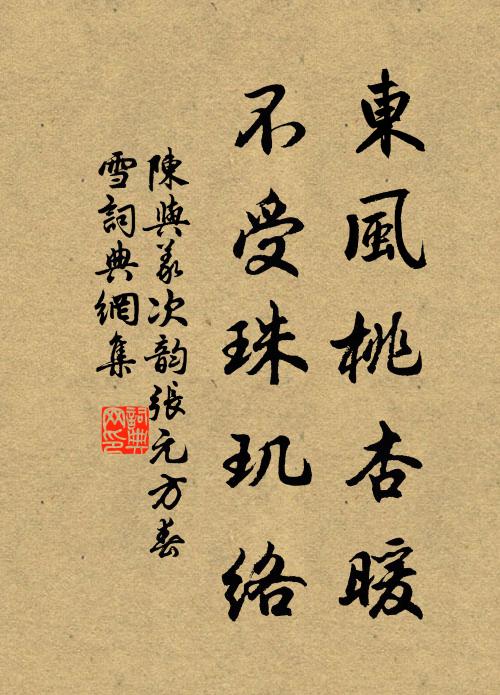 東風桃杏暖
不受珠玑絡
陳與義次韵張元方春
雪詞典網集
詞典網印